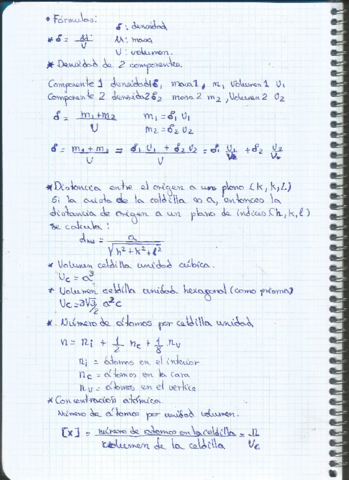 • Fórmulas:
δ: densidad
* δ = M/V M: masa
V: volumen.
* Densidad de 2 componentes.
Componente 1 densidad δ1, masa 1, m1, Volumen 1 V1
Componente 2 densidad δ2 masa 2 m2, Volumen 2 V2
δ = (m1+m2)/V m1 = δ1 V1
m2 = δ2 V2
δ = (m1+m2)/V = (δ1 V1 + δ2 V2)/V = δ1 V1/V + δ2 V2/V
* Distancia entre el origen a un plano (h, k, l)
Si la arista de la celdilla es a, entonces la
distancia de origen a un plano de indices (h, k, l)
se calcula:
dhkl = a/√(h²+k²+l²)
* Volumen celdilla unidad cúbica.
Vc = a³
* Volumen celdilla unidad hexagonal (como prisma)
Vc = 3√3/2 a²c
* Número de átomos por celdilla unidad
n = ni + 1/2 nc + 1/8 nv
ni = átomos en el interior
nc = átomos en la cara
nv = átomos en el vertice
* Concentración atómica.
Número de átomos por unidad volumen.
[x] = número de atomos en la celdilla/volumen de la celdilla = n/Vc